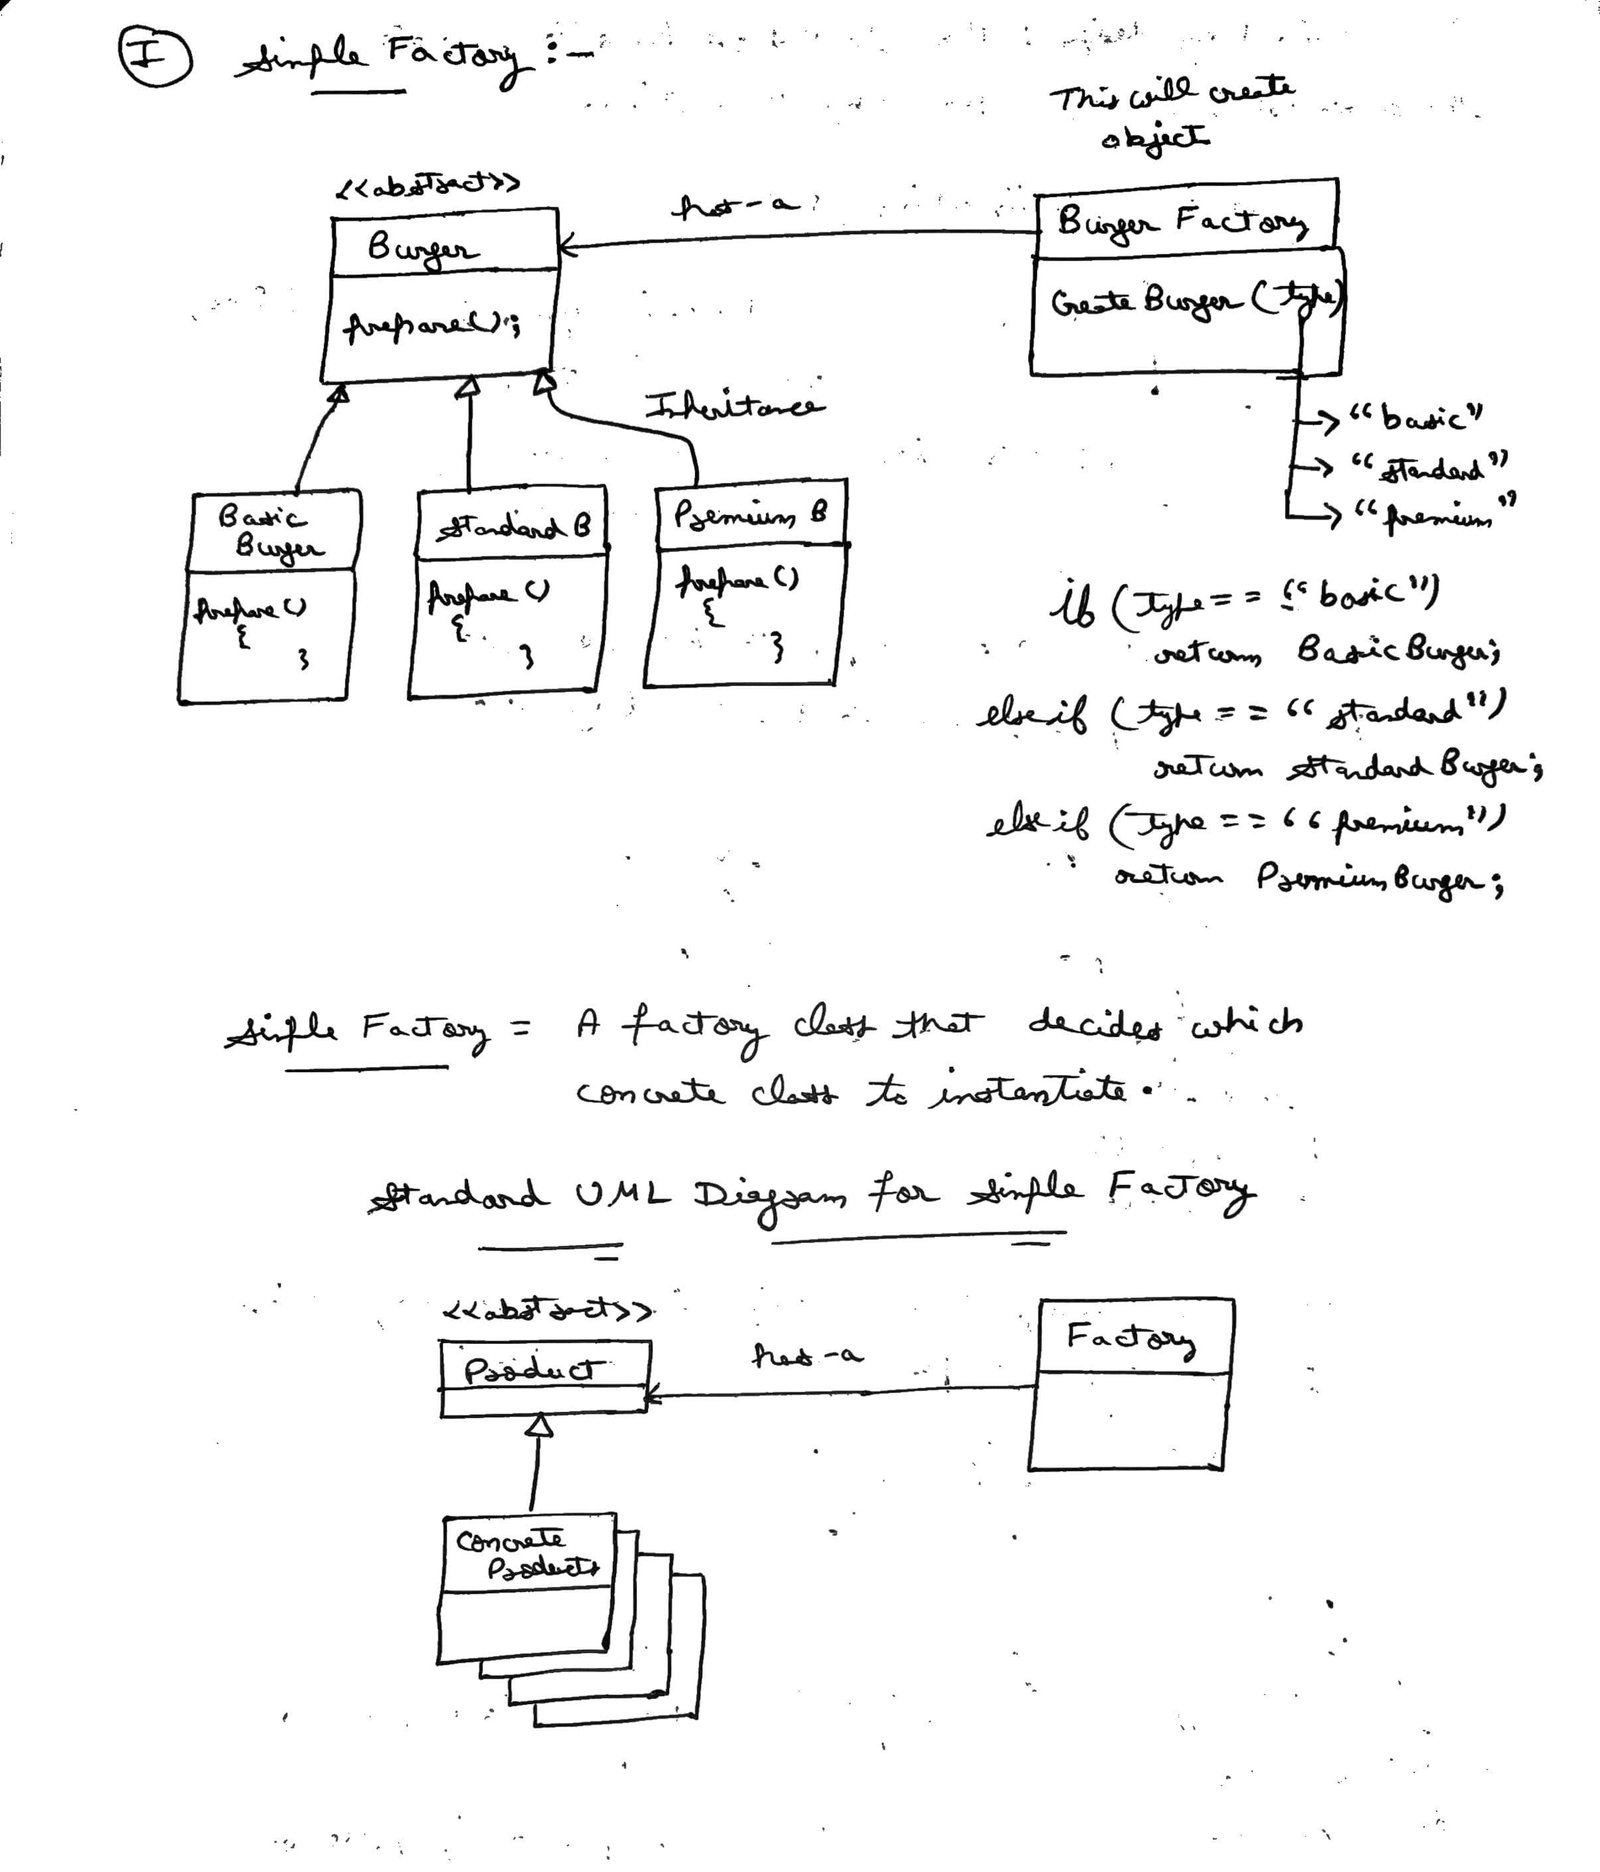 I Simple Factory :-
This will create
object
<<abstract>>
Burger
prepare();
has-a
Burger Factory
Create Burger (type)
Inheritance
"basic"
"standard"
"premium"
Basic
Burger
prepare()
{
}
Standard B
prepare()
{
}
Premium B
prepare()
{
}
if (type == "basic")
return BasicBurger;
else if (type == "standard")
return Standard Burger;
else if (type == "premium")
return Premium Burger;
Simple Factory = A factory class that decides which
concrete class to instantiate.
Standard UML Diagram for Simple Factory
<<abstract>>
Product
has-a
Factory
Concrete
Products